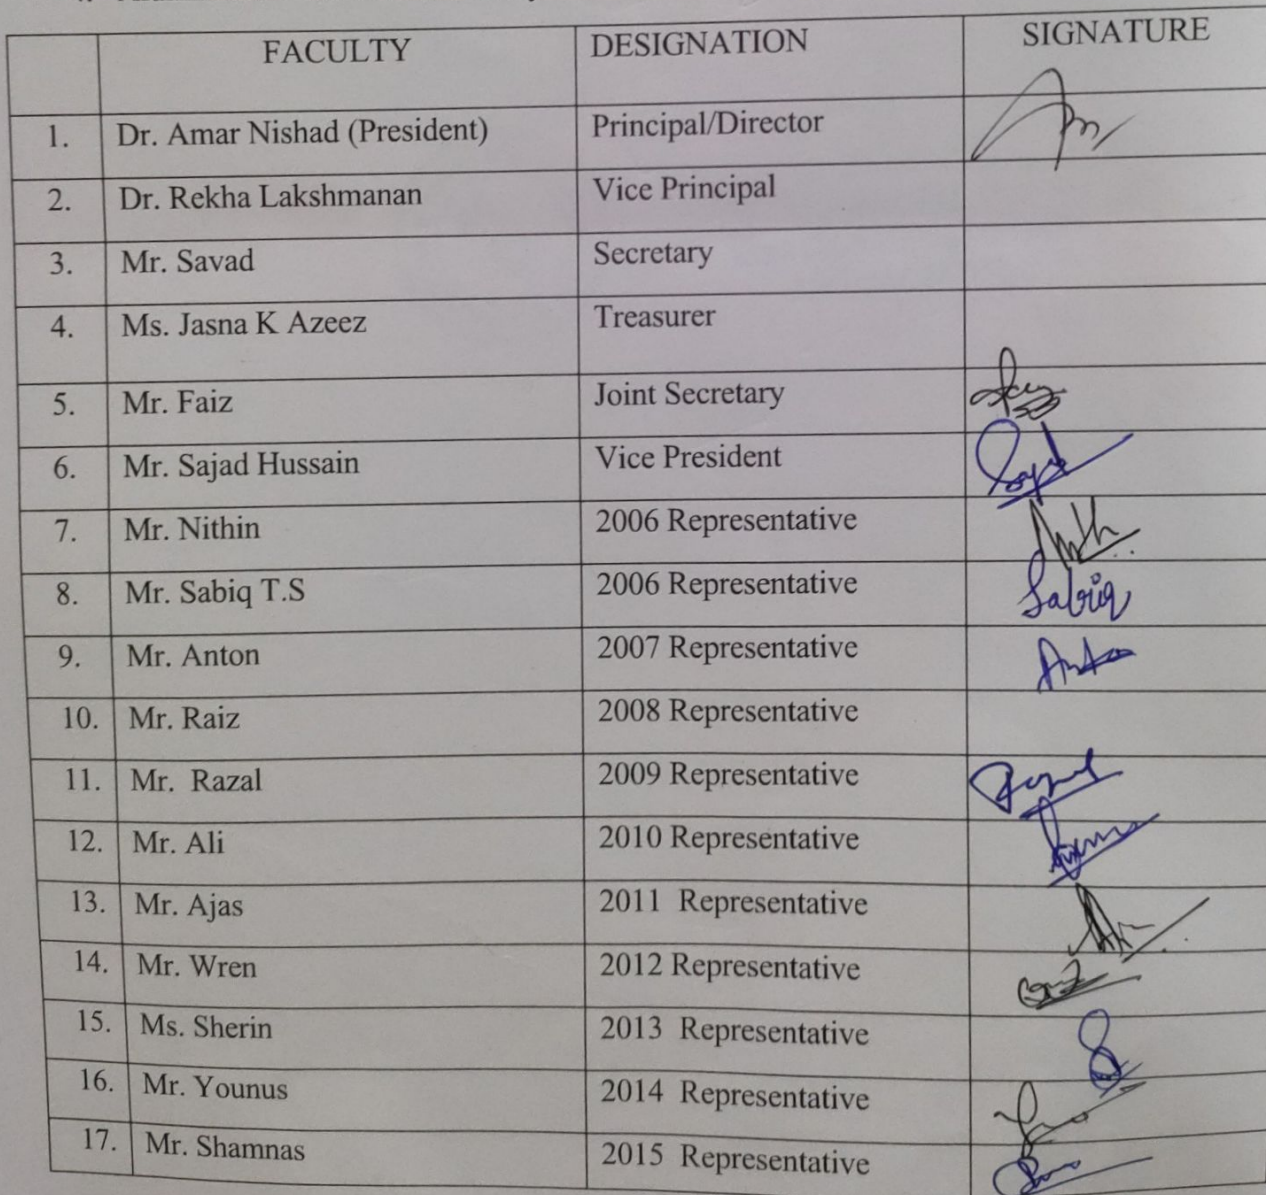 FACULTY DESIGNATION SIGNATURE
1. Dr. Amar Nishad (President) Principal/Director
2. Dr. Rekha Lakshmanan Vice Principal
3. Mr. Savad Secretary
4. Ms. Jasna K Azeez Treasurer
5. Mr. Faiz Joint Secretary
6. Mr. Sajad Hussain Vice President
7. Mr. Nithin 2006 Representative
8. Mr. Sabiq T.S 2006 Representative Sabiq
9. Mr. Anton 2007 Representative
10. Mr. Raiz 2008 Representative
11. Mr. Razal 2009 Representative
12. Mr. Ali 2010 Representative
13. Mr. Ajas 2011 Representative
14. Mr. Wren 2012 Representative
15. Ms. Sherin 2013 Representative
16. Mr. Younus 2014 Representative
17. Mr. Shamnas 2015 Representative